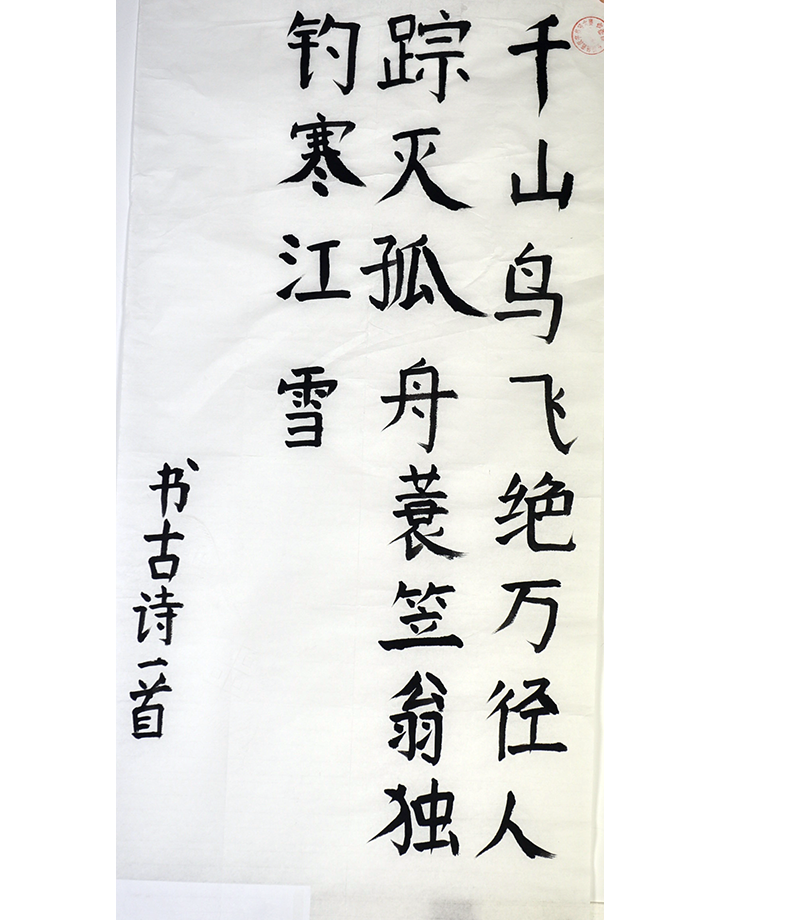 千山鸟飞绝万径人
踪灭孤舟蓑笠翁独
钓寒江雪
书古诗一首